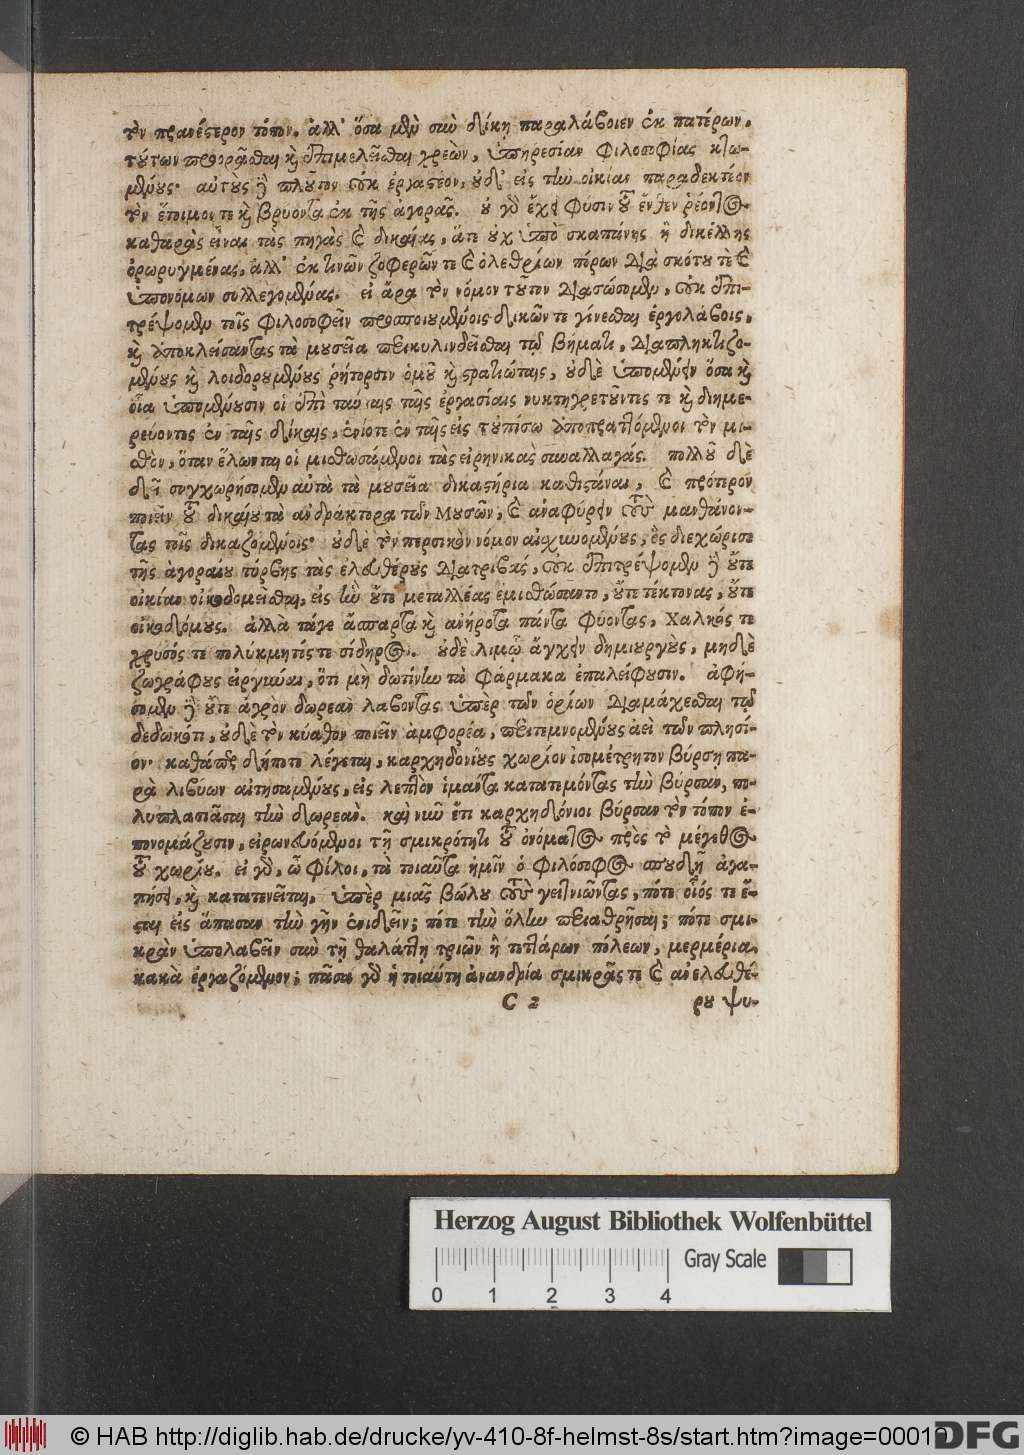 τὸν πρανέστερον τόπον. ἀλλ' ὅσα μὲν σὺν δίκῃ παραλάβοιεν ἐκ πατέρων,
τούτων προορᾶσθαι καὶ ἐπιμελεῖσθαι χρεὼν, ὑπηρεσίαν φιλοσοφίας κτω-
μένους· αὐτοὺς δὲ πλοῦτον οὐκ ἐργαστέον, οὐδ' εἰς τὴν οἰκίαν παραδεκτέον
τὸν ἕτοιμον τε καὶ βρύοντα ἐκ τῆς ἀγορᾶς. οὐ γὰρ ἔχει φύσιν τοῦ ἔνθεν ῥέοντος
καθαρὰς εἶναι τὰς πηγὰς καὶ δικαίας, ἅτε οὐχ ὑπὸ σκαπάνης ἢ δικέλλης
ὀρωρυγμένας, ἀλλ' ἐκ τινῶν ζοφερῶν τε καὶ ὀλεθρίων πόρων διὰ σκότου τὲ καὶ
ὑπονόμων συλλεγομένας. εἰ ἄρα τὸν νόμον τοῦτον διασώσομεν, οὐκ ἐπι-
τρέψομεν τοῖς φιλοσοφεῖν προσποιουμένοις δικῶν τε γίνεσθαι ἐργολάβοις,
καὶ ἀποκλείσαντας τὰ μουσεῖα περικυλινδεῖσθαι τῷ βήματι, διαπληκτιζο-
μένους καὶ λοιδορουμένους ῥήτορσιν ὁμοῦ καὶ στρατιώταις, οὐδὲ ὑπομένειν ὅσα καὶ
οἷα ὑπομένουσιν οἱ ἐπὶ ταύταις ταῖς ἐργασίαις νυκτηγρετοῦντές τε καὶ διημε-
ρεύοντες ἐν ταῖς δίκαις, ἐνίοτε ἐν ταῖς εἰς τοὐπίσω ἀποπραττόμενοι τὸν μι-
σθὸν, ὅταν ἕλωνται οἱ μισθωσάμενοι τὰς εἰρηνικὰς συναλλαγάς. πολλοῦ δὲ
δεῖ συγχωρήσομεν αὐτὰ τὰ μουσεῖα δικαστήρια καθιστάναι, καὶ πρότερον
ποιεῖν τοῦ δικαίου τὰ ἀνάκτορα τῶν Μουσῶν, καὶ ἀναφύρειν τοὺς μανθάνον-
τας τοῖς δικαζομένοις· οὐδὲ τὸν περσικὸν νόμον αἰσχυνομένους, ὃς διεχώρισε
τῆς ἀγοραίου τύρβης τὰς ἐλευθέρους διατριβάς, οὐκ ἐπιτρέψομεν δὲ οὔτε
οἰκίαν οἰκοδομεῖσθαι, εἰς ἣν οὔτε μεταλλέας ἐμισθώσαντο, οὔτε τέκτονας, οὔτε
οἰκοδόμους. ἀλλὰ τάγε ἄσπαρτα καὶ ἀνήροτα πάντα φύονται, Χαλκός τε
χρυσός τε πολύκμητός τε σίδηρος. οὐδὲ λιμῷ ἄγχειν δημιουργοὺς, μηδὲ
ζωγράφους εἱργνύναι, ὅτι μὴ δωτίνην τὰ φάρμακα ἐπαλείφουσιν. ἀφή-
σομεν δὲ οὔτε ἀγρὸν δωρεὰν λαβόντας ὑπὲρ τῶν ὁρίων διαμάχεσθαι τῷ
δεδωκότι, οὐδὲ τὸν κύαθον ποιεῖν ἀμφορέα, περιτεμνομένους ἀεὶ τῶν πλησί-
ον· καθάπερ δήποτε λέγεται, καρχηδονίους χωρίον ἰσομέτρητον βύρσῃ πα-
ρὰ λιβύων αἰτησαμένους, εἰς λεπτὸν ἱμάντα κατατεμόντας τὴν βύρσαν, πο-
λυπλασιᾶσαι τὴν δωρεάν. καὶ νῦν ἔτι καρχηδόνιοι βύρσαν τὸν τόπον ἐ-
πονομάζουσιν, εἰρωνευόμενοι τῇ σμικρότητι τοῦ ὀνόματος πρὸς τὸ μέγεθος
τοῦ χωρίου. εἰ γὰρ, ὦ φίλοι, τὰ τοιαῦτα ἡμῖν ὁ φιλόσοφος σπουδῇ ἀγα-
πήσει, καὶ κατατενεῖται, ὑπὲρ μιᾶς βώλου τοὺς γειτνιῶντας, πότε οἷός τε ἔ-
σται εἰς ἅπασαν τὴν γῆν ἐνιδεῖν; πότε τὴν ὅλην περιαθρῆσαι; πότε σμι-
κρὰν ὑπολαβεῖν σὺν τῇ θαλάττῃ τριῶν ἢ τεττάρων πόλεων, μερμέρια
κακὰ ἐργαζόμενον; πᾶσα γὰρ ἡ τοιαύτη ἀνανδρία σμικρᾶς τε καὶ ἀνελευθέ-
C 2 ρου ψυ-
Herzog August Bibliothek Wolfenbüttel
0 1 2 3 4 Gray Scale
© HAB http://diglib.hab.de/drucke/yv-410-8f-helmst-8s/start.htm?image=00019
DFG